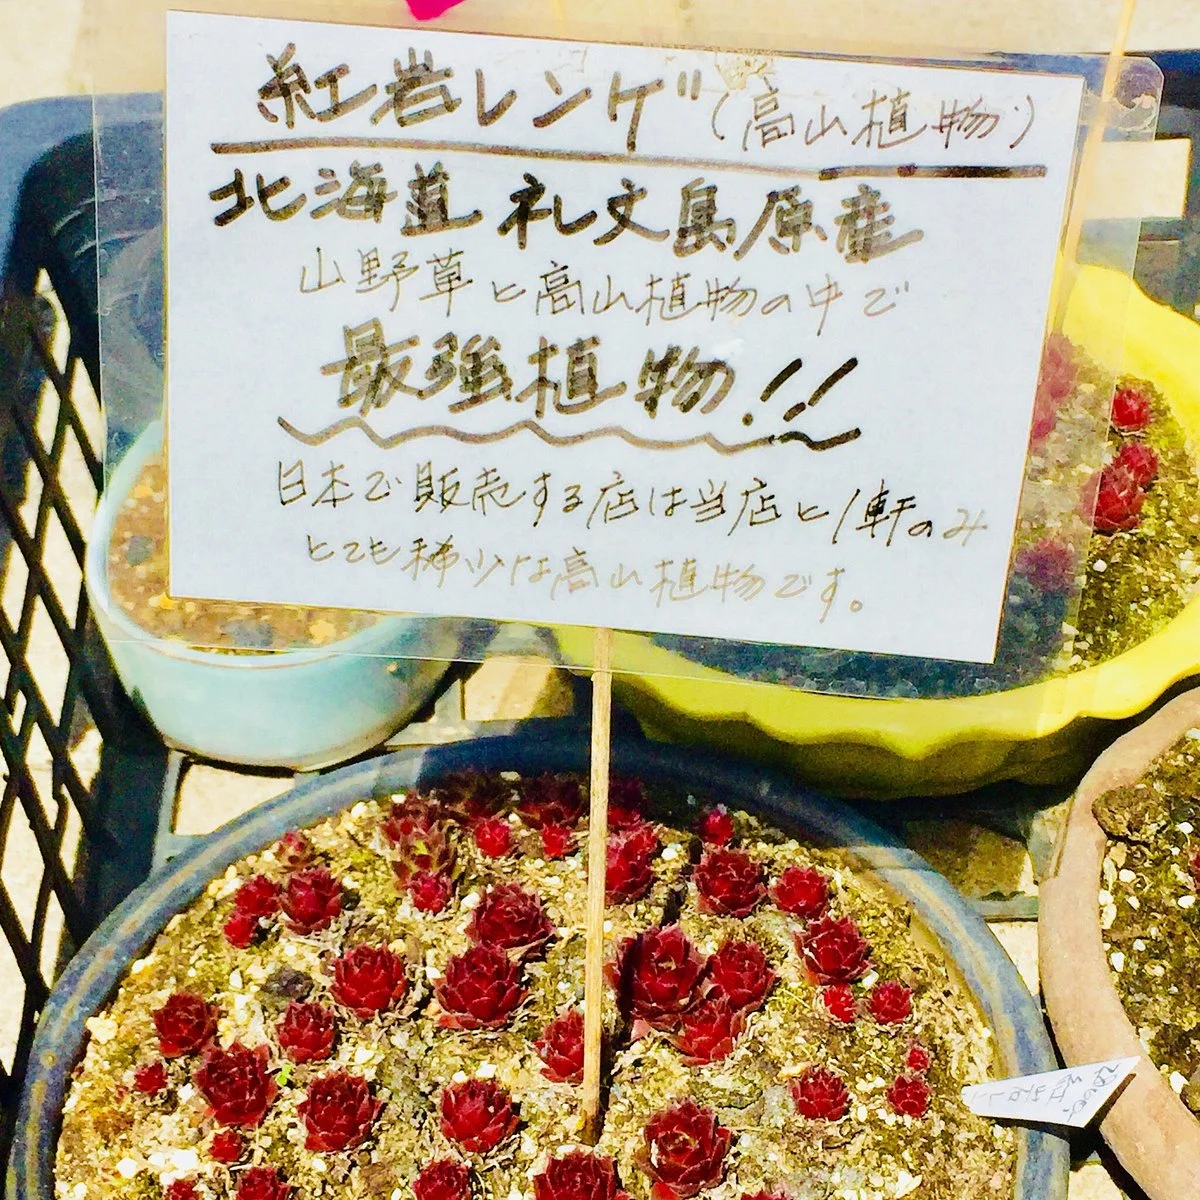 紅岩レンゲ(高山植物)
北海道 礼文島原産
山野草と高山植物の中で
最強植物!!
日本で販売する店は当店と1軒のみ
とても稀少な高山植物です。